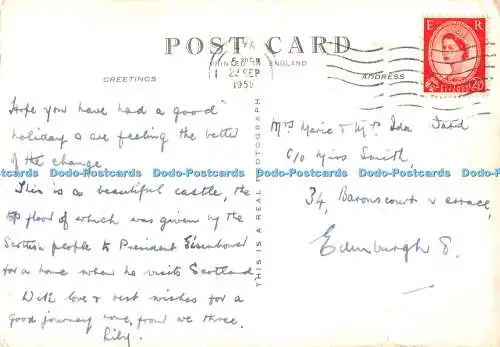 POST CARD
PRINTED ENGLAND
GREETINGS
ADDRESS
E R
2½
5 PM
22 SEP
195
Hope you have had a good
holiday & are feeling the better
of the change.
This is a beautiful castle, the
top flood of which was given by the
Scottish people to President Eisenhower
for a home when he visits Scotland
With love & best wishes for a
good journey home, from we three.
Lily.
THIS IS A REAL PHOTOGRAPH
Mrs Marie & Mrs Ida
c/o Miss Smith,
34, Baronscourt Terrace,
Edinburgh 8.
Dodo-Postcards Dodo-Postcards Dodo-Postcards Dodo-Postcards